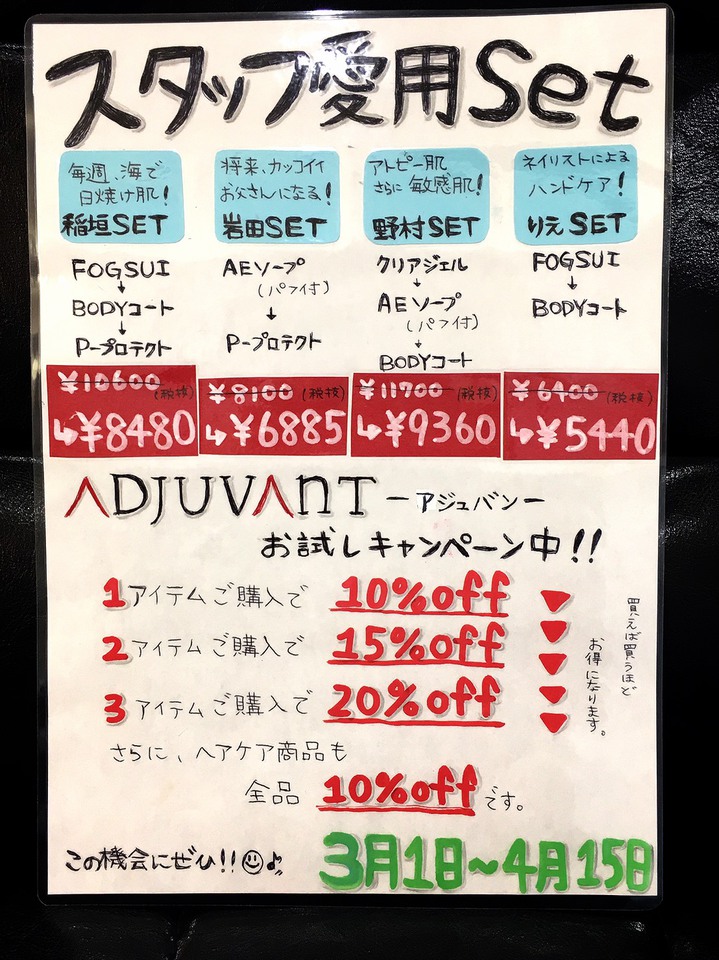 スタッフ愛用Set
毎週、海で
日焼け肌!
稲垣SET
FOGSUI
↓
BODYコート
↓
P-プロテクト
¥10600(税抜)
↳¥8480
将来、カッコイイ
お父さんになる!
岩田SET
AEソープ
(パフ付)
↓
P-プロテクト
¥8100(税抜)
↳¥6885
アトピー肌
さらに敏感肌!
野村SET
クリアジェル
↓
AEソープ
(パフ付)
↓
BODYコート
¥11700(税抜)
↳¥9360
ネイリストによる
ハンドケア!
りえSET
FOGSUI
↓
BODYコート
¥6400(税抜)
↳¥5440
ADJUVANT ーアジュバンー
お試しキャンペーン中!!
1アイテムご購入で 10%off
2アイテムご購入で 15%off
3アイテムご購入で 20%off
買えば買うほど
お得になります。
さらに、ヘアケア商品も
全品 10%offです。
この機会にぜひ!!☺♪
3月1日~4月15日